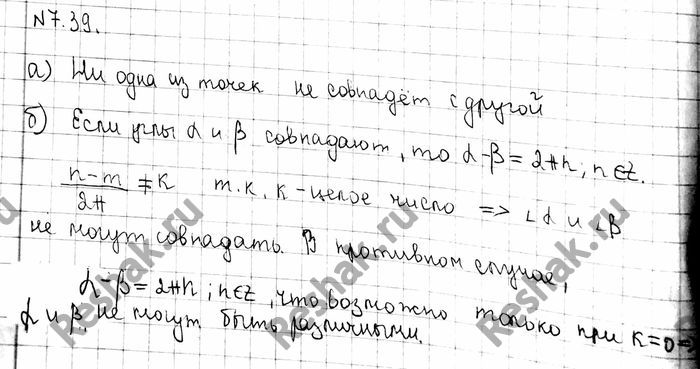 N7.39.
а) Ни одна из точек не совпадёт с другой
б) Если углы α и β совпадают, то α-β = 2πn; n∈Z.
n-m/2π ≠ K т.к. K - целое число => ∠α и ∠β
не могут совпадать. В противном случае,
α-β = 2πn; n∈Z, что возможно только при K=0 =>
α и β не могут быть различными.
Reshak.ru
Reshak.ru
Reshak.ru